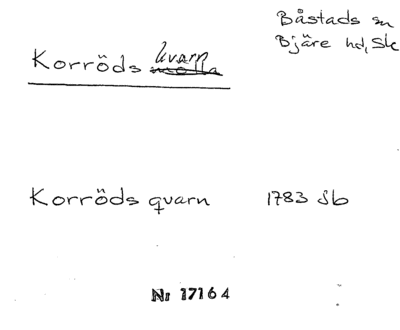 Båstads sn
Bjäre hd, Sk
Korröds kvarn
Korröds qvarn 1783 Jb
Nr 17164